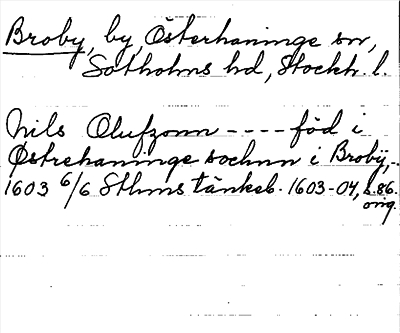 Broby, by, Österhaninge sn,
Sotholms hd, Stockh. l.
Nils Olufzonn ---- föd i
Østrehaninge sochnn i Brobÿ,-.
1603 6/6 Sthms tänkeb. 1603-04, s.86.
orig.